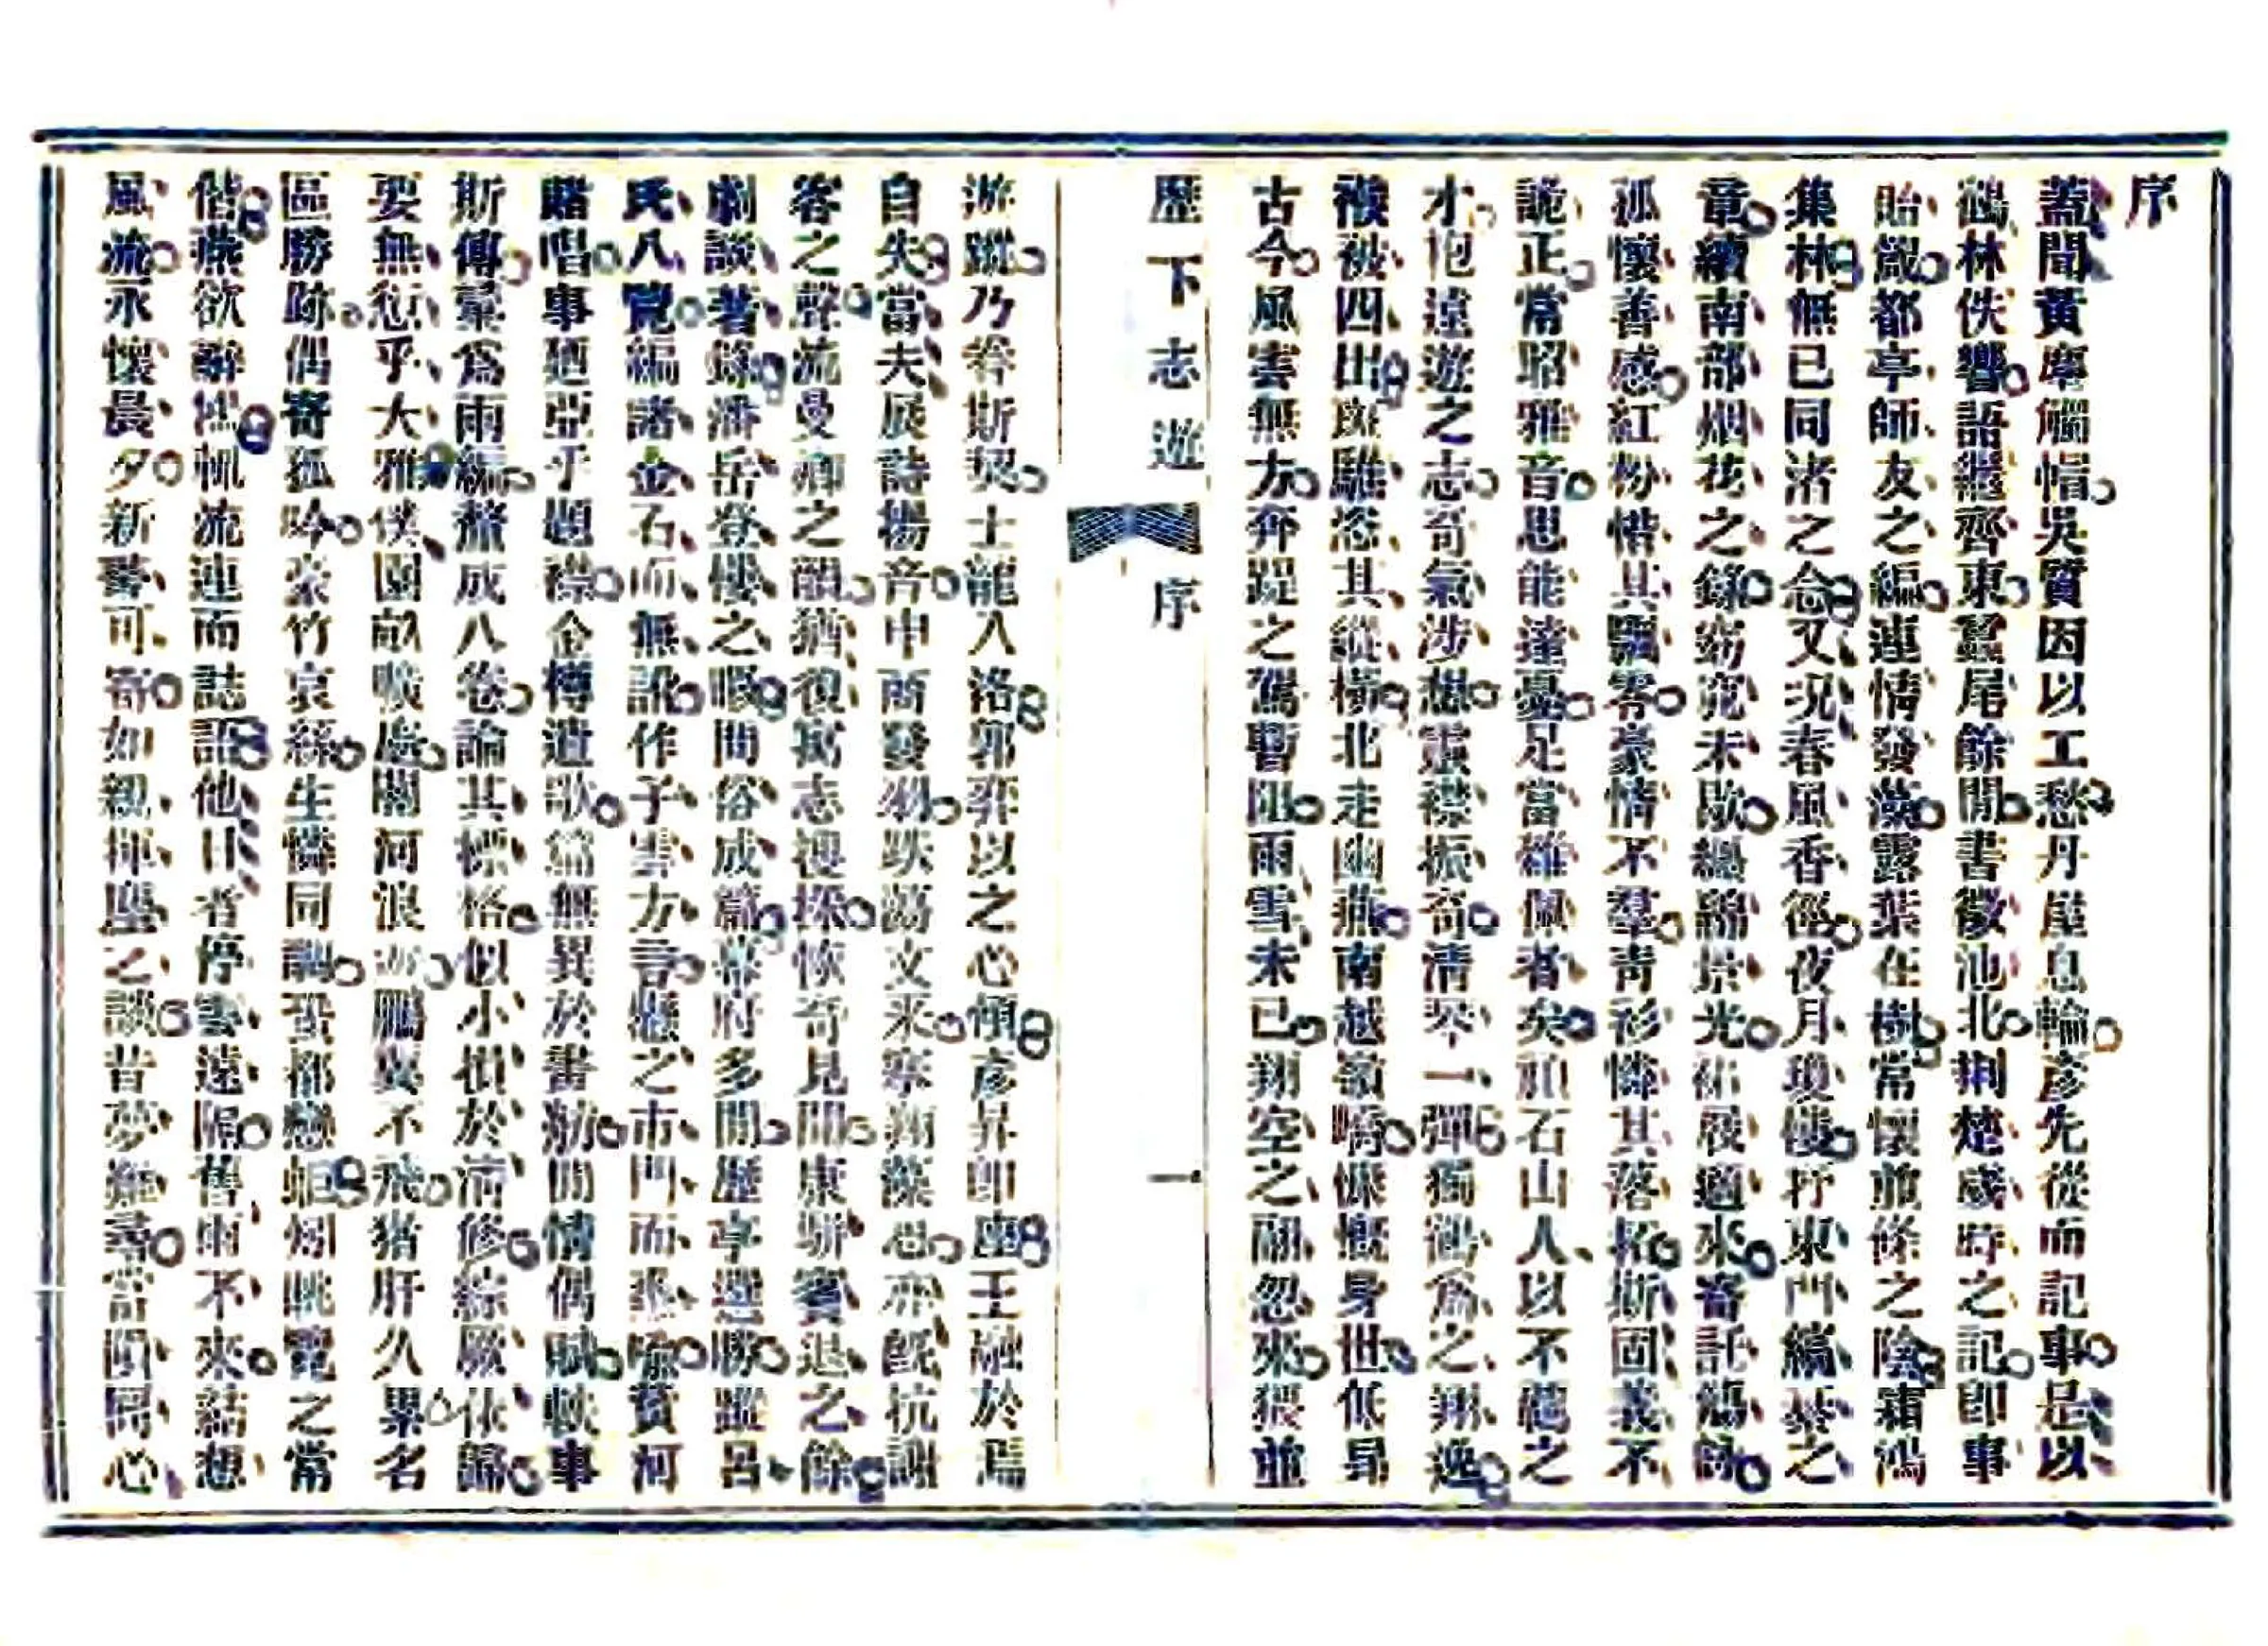 序
蓋聞黃摩觸帽吳質因以工愁丹崖息輪彥先從而記事是以
鶴林佚響語繼齊東蠆尾餘聞書徵池北荆楚歲時之記即事
貽觀都亭師友之編連情發藻露葉在樹常懷並條之陰霜鴻
集林無已同渚之念又况春風香徑夜月瓊樓抒東門縞綦之
章續南部烟花之錄窈窕未歇緜景光拓殷適來審託觴詠
孤懷善感紅粉惜其飄零豪情不羣青衫憐其落拓斯固義不
詭正常昭雅音思能達憂足當雜佩者矣石山人以不覊之
才抱遠遊之志奇氣涉想靈襟振奇清琴一彈獨鶴爲之翔逸
襆被四出斑騅恣其縱橫北走幽燕南越嶺嶠慷慨身世低昂
古今風雲無方奔踶之駕暫阻雨雪未已翔空之翮忽來猥並
歷下志遊 序 一
游蹤乃眷斯契士龍入洛郭弈以之心傾彥昇卽座王融於焉
自失當夫展詩揚音中商發羽跌蕩文采騫翔藻思亦旣抗謝
客之聲流曼卿之韻猶復寓志搜採恢奇見聞康駢賓退之餘
劇談著錄潘岳登樓之暇閒俗成篇幕府多閒歷亭選勝蹤呂
氏八覽編諸金石而無訛作子雲方言懸之市門而悉喩黃河
賭唱事廼亞于題襟金樽遣歌篇無異於書舫閒情偶賦軼事
斯傳彙爲兩編釐成八卷論其標格似小損於淸修綜厥依歸
要無愆乎大雅僕園歗嘅處關河浪游鵬翼不飛猪肝久累名
區勝跡偶寄狐吟豪竹哀絲生憐同調蛩都戀蚷烱眺霓之常
偕燕欲辭鴻帆流連而誌語他日者停雲遠隔舊雨不來結想
風流永懷晨夕新醫可寄如親揮麈之談昔夢難尋當隕同心